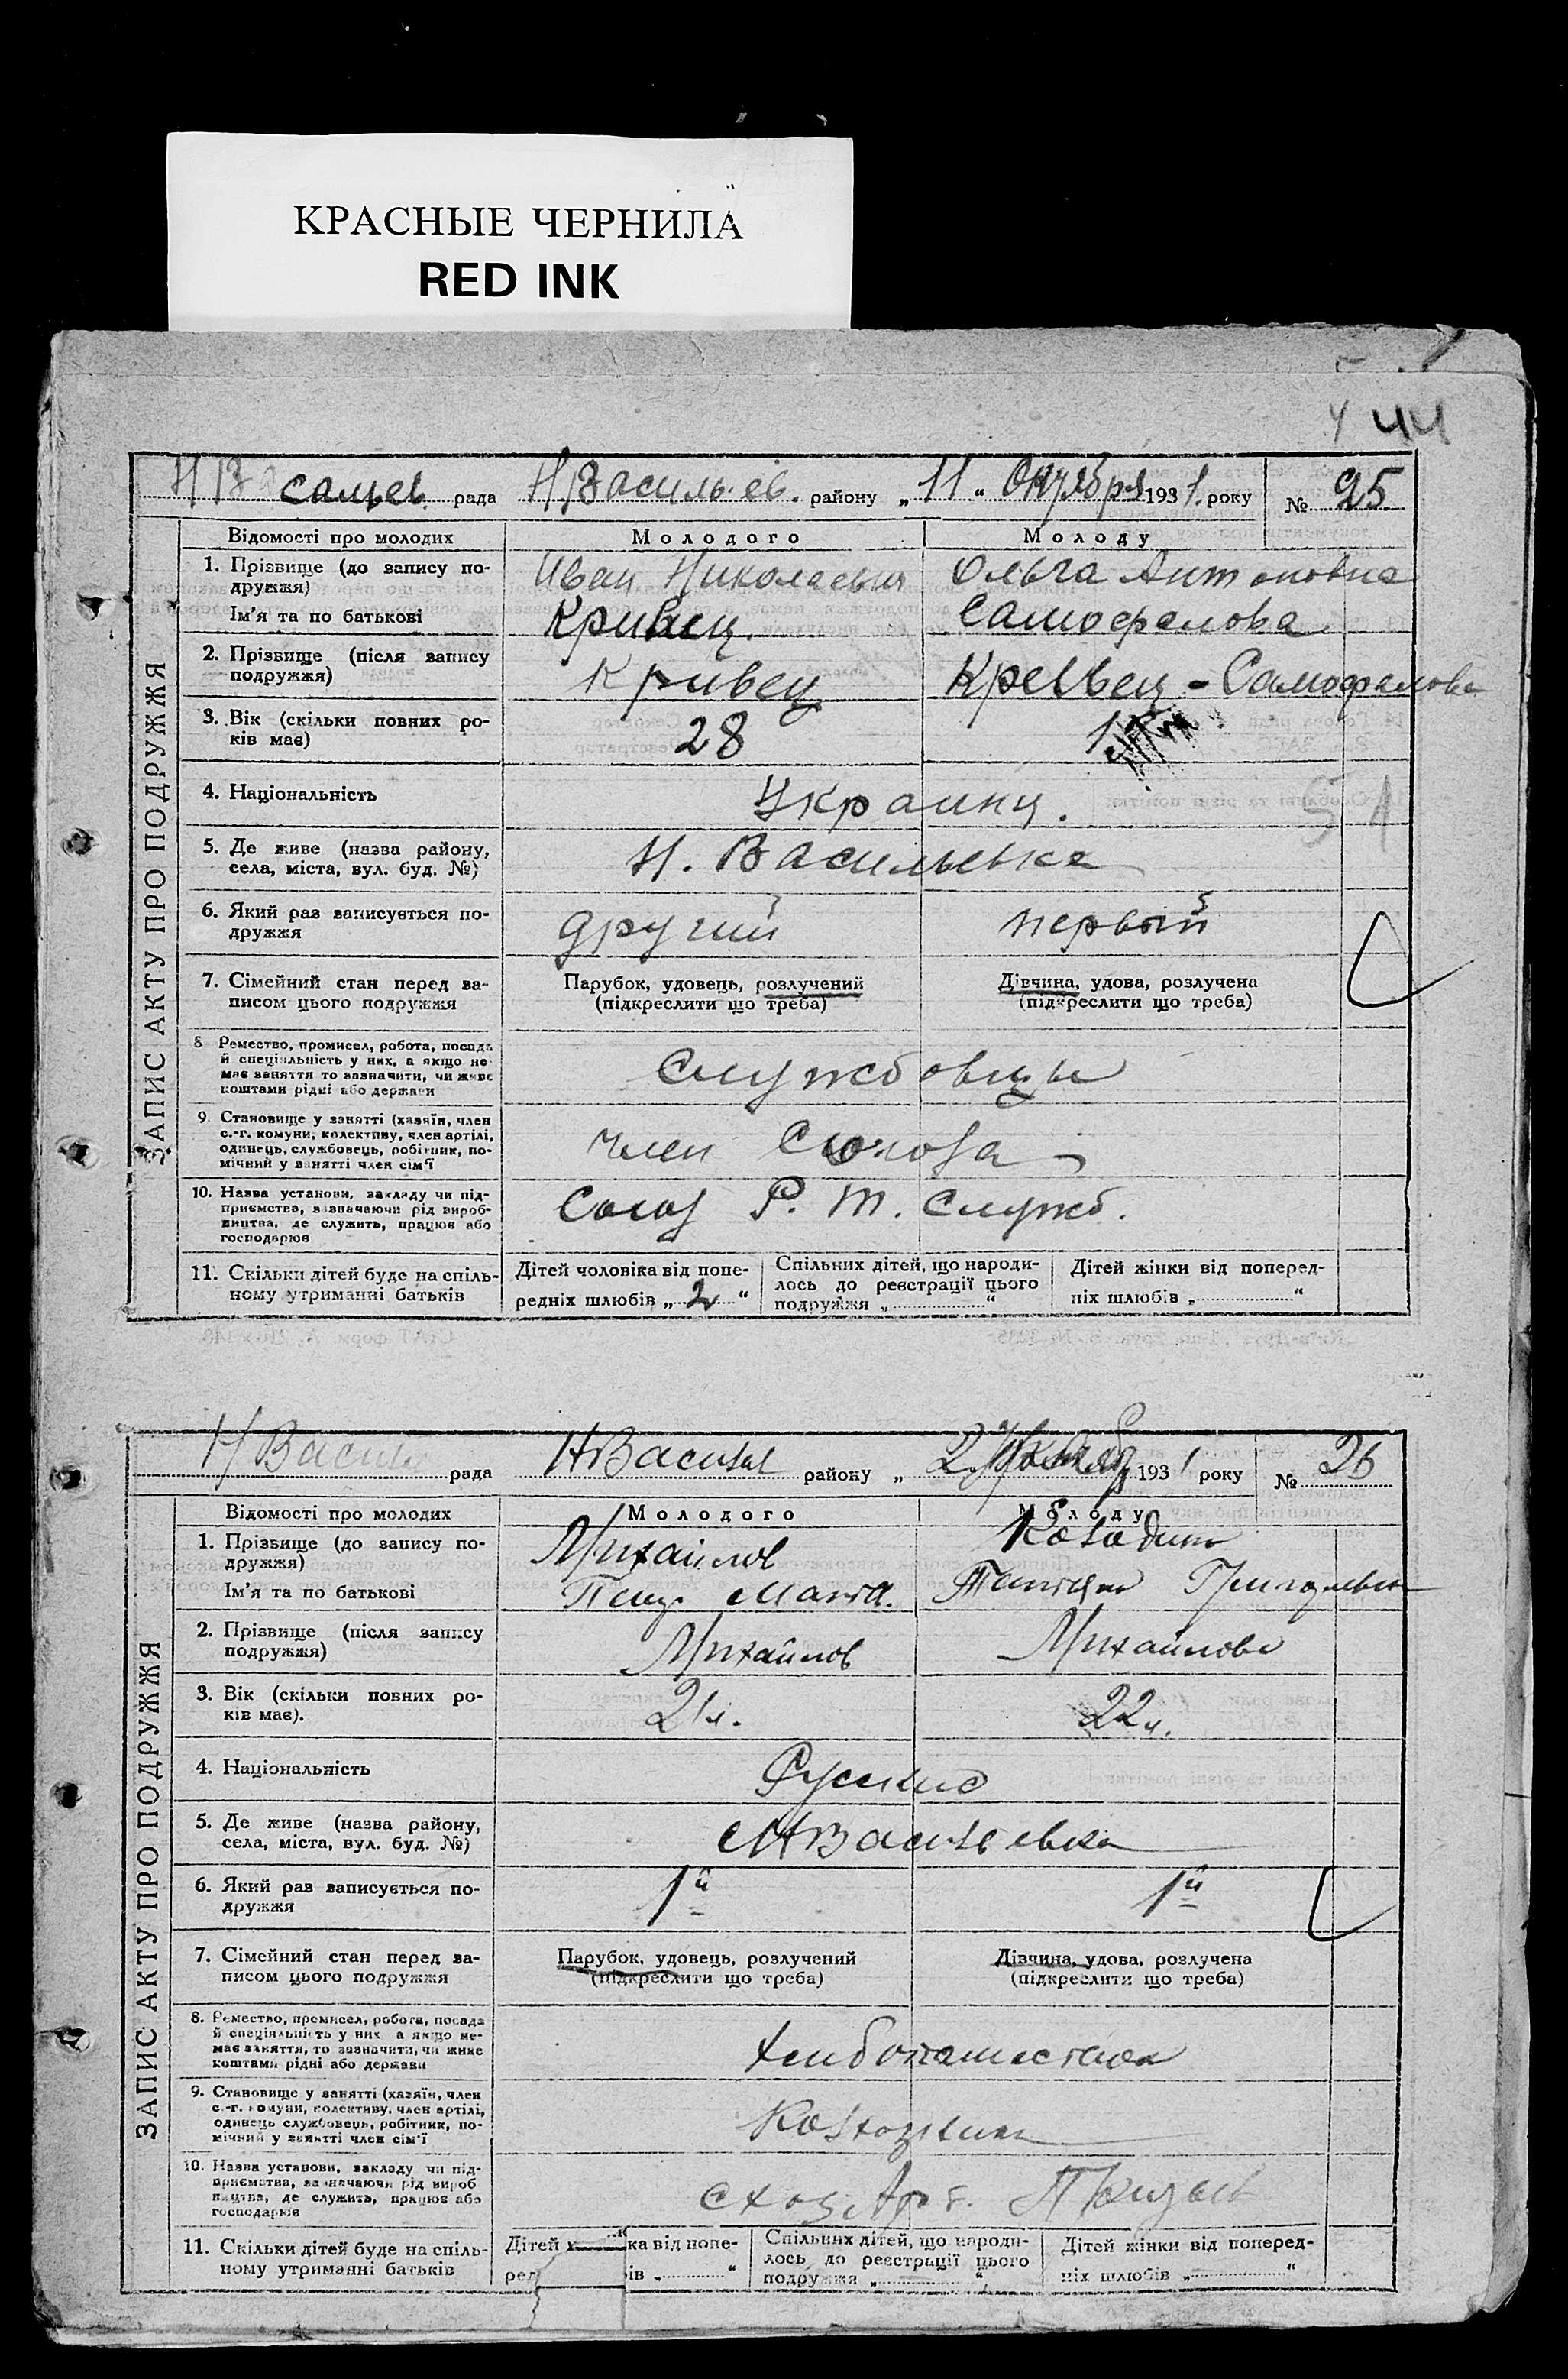 КРАСНЫЕ ЧЕРНИЛА
RED INK
44
Н Васильев. рада Н Васильев. району „11“ Октября 1931. року № 25
ЗАПИС АКТУ ПРО ПОДРУЖЖЯ
Відомості про молодих Молодого Молоду
1. Прізвище (до запису по-
дружжя)
Ім'я та по батькові
Иван Николаевич Ольга Антоновна
Кривец. Самофалова
2. Прізвище (після запису
подружжя)
Кривец Кривец - Самофалова
3. Вік (скільки повних ро-
ків має)
28
4. Національність
Украинц.
5. Де живе (назва району,
села, міста, вул. буд. №)
Н. Васильевка
6. Який раз записується по-
дружжя
другий первый
7. Сімейний стан перед за-
писом цього подружжя
Парубок, удовець, розлучений Дівчина, удова, розлучена
(підкреслити що треба) (підкреслити що треба)
8 Ремество, промисел, робота, посада
й спеціяльність у них, а якщо не
має заняття то зазначити, чи живе
коштами рідні або держави
Службовцы
9. Становище у занятті (хазяїн, член
с.-г. комуни, колективу, член артілі,
одинець, службовець, робітник, по-
мічний у занятті член сім'ї
член Союза
10. Назва установи, закладу чи під-
приємства, зазначаючи рід вироб-
ництва, де служить, працює або
господарює
Союз Р. Т. Служб.
11. Скільки дітей буде на спіль-
ному утриманні батьків
Дітей чоловіка від попе-
редніх шлюбів „ 2 “
Спільних дітей, що народи-
лось до реєстрації цього
подружжя „ “
Дітей жінки від поперед-
ніх шлюбів „ “
Н Василь рада Н Васил району „ 2 193 1 року № 26
ЗАПИС АКТУ ПРО ПОДРУЖЖЯ
Відомості про молодих Молодого Молоду
1. Прізвище (до запису по-
дружжя)
Ім'я та по батькові
Михайлов
Татияна Григорьевна
2. Прізвище (після запису
подружжя)
Михайлов Михайлова
3. Вік (скільки повних ро-
ків має).
21 л. 22 л.
4. Національність
Русские
5. Де живе (назва району,
села, міста, вул. буд. №)
Н Васильевка
6. Який раз записується по-
дружжя
1й 1й
7. Сімейний стан перед за-
писом цього подружжя
Парубок, удовець, розлучений Дівчина, удова, розлучена
(підкреслити що треба) (підкреслити що треба)
8. Ремество, промисел, робота, посада
й спеціяльність у них а якщо не-
має заняття, то зазначити, чи живе
коштами рідні або держави
Хлибопашество
9. Становище у занятті (хазяїн, член
с.-г. комуни, колективу, член артілі,
одинець службовець, робітник, по-
мічний у занятті член сім'ї
Колхозники
10. Назва установи, закладу чи під-
приємства, зазначаючи рід вироб
ництва, де служить, працює або
господарює
схоз. Арт.
11. Скільки дітей буде на спіль-
ному утриманні батьків
Дітей ка від попе-
ред ів „ “
Спільних дітей, що народи-
лось до реєстрації цього
подружжя „ “
Дітей жінки від поперед-
ніх шлюбів „ “